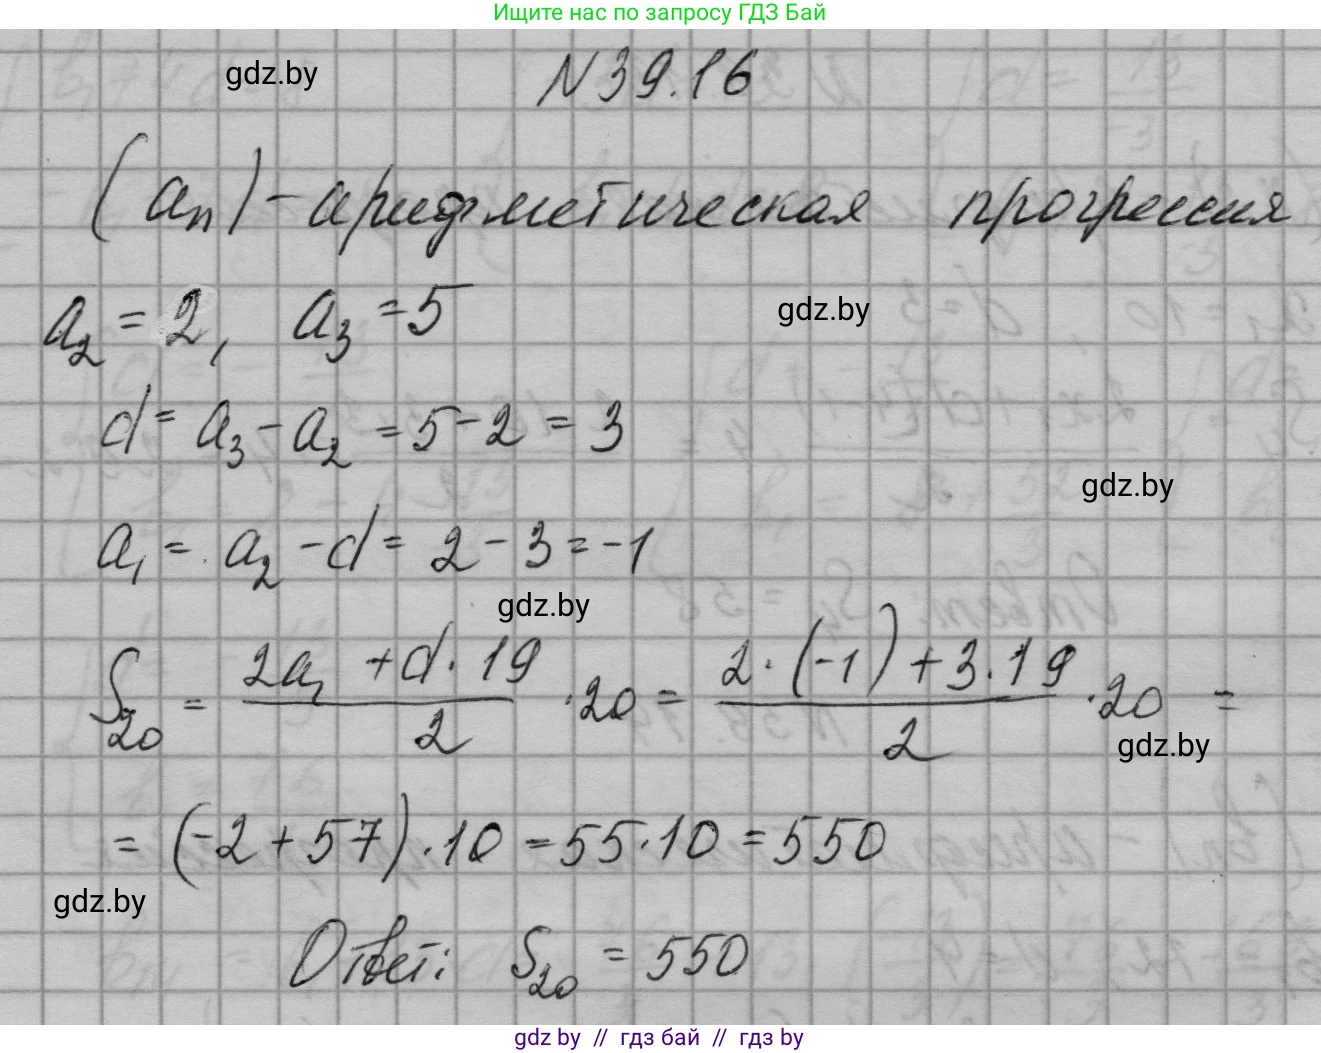 Ищите нас по запросу ГДЗ Бай
gdz.by
N 39.16
(aₙ) - арифметическая прогрессия
a₂ = 2, a₃ = 5
gdz.by
d = a₃ - a₂ = 5 - 2 = 3
gdz.by
a₁ = a₂ - d = 2 - 3 = -1
gdz.by
S₂₀ = (2a₁ + d · 19)/2 · 20 = (2 · (-1) + 3 · 19)/2 · 20 =
gdz.by
= (-2 + 57) · 10 = 55 · 10 = 550
gdz.by
Ответ: S₂₀ = 550
gdz by // гдз бай // гдз by